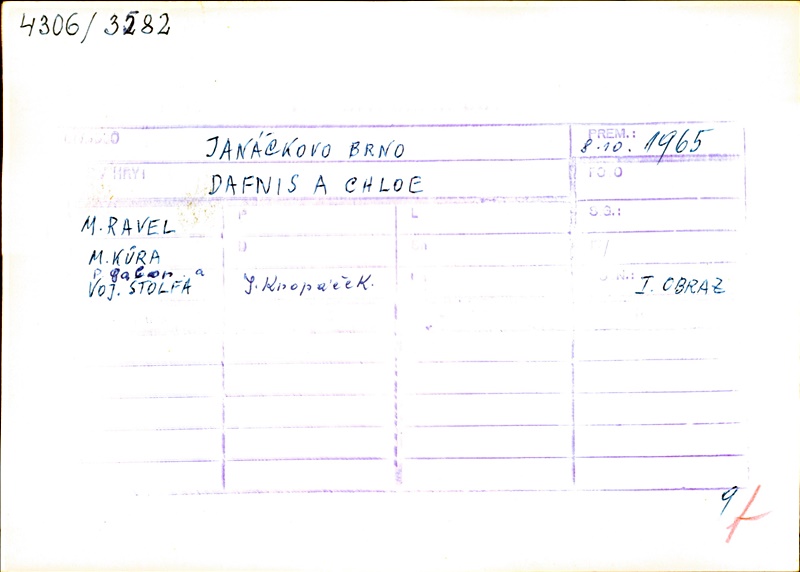 4306/3282
JANÁČKOVO BRNO
PREM.:
8.10. 1965
HRY:
DAFNIS A CHLOE
FOTO
M. RAVEL
P
L
S.G.:
M. KŮRA
D
P. Gábor a
VOJ. ŠTOLFA
J. Knopáček.
I. OBRAZ
9